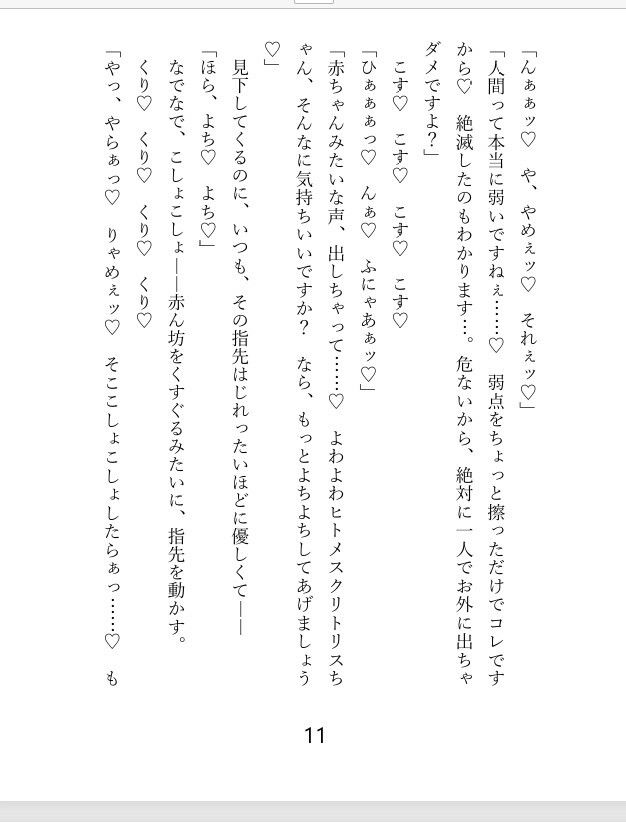 「んぁぁッ♡　や、やめぇッ♡　それぇッ♡」
「人間って本当に弱いですねぇ……♡　弱点をちょっと擦っただけでコレです
から♡　絶滅したのもわかります…。危ないから、絶対に一人でお外に出ちゃ
ダメですよ？」
　こす♡　こす♡　こす♡　こす♡
「ひぁぁぁっ♡　んぁ♡　ふにゃあぁッ♡」
「赤ちゃんみたいな声、出しちゃって……♡　よわよわヒトメスクリトリスち
ゃん、そんなに気持ちいいですか？　なら、もっとよちよちしてあげましょう
♡」
　見下してくるのに、いつも、その指先はじれったいほどに優しくて――
「ほら、よち♡　よち♡」
　なでなで、こしょこしょ――赤ん坊をくすぐるみたいに、指先を動かす。
　くり♡　くり♡　くり♡　くり♡
「やっ、やらぁっ♡　りゃめぇッ♡　そここしょこしょしたらぁっ……♡　も
11